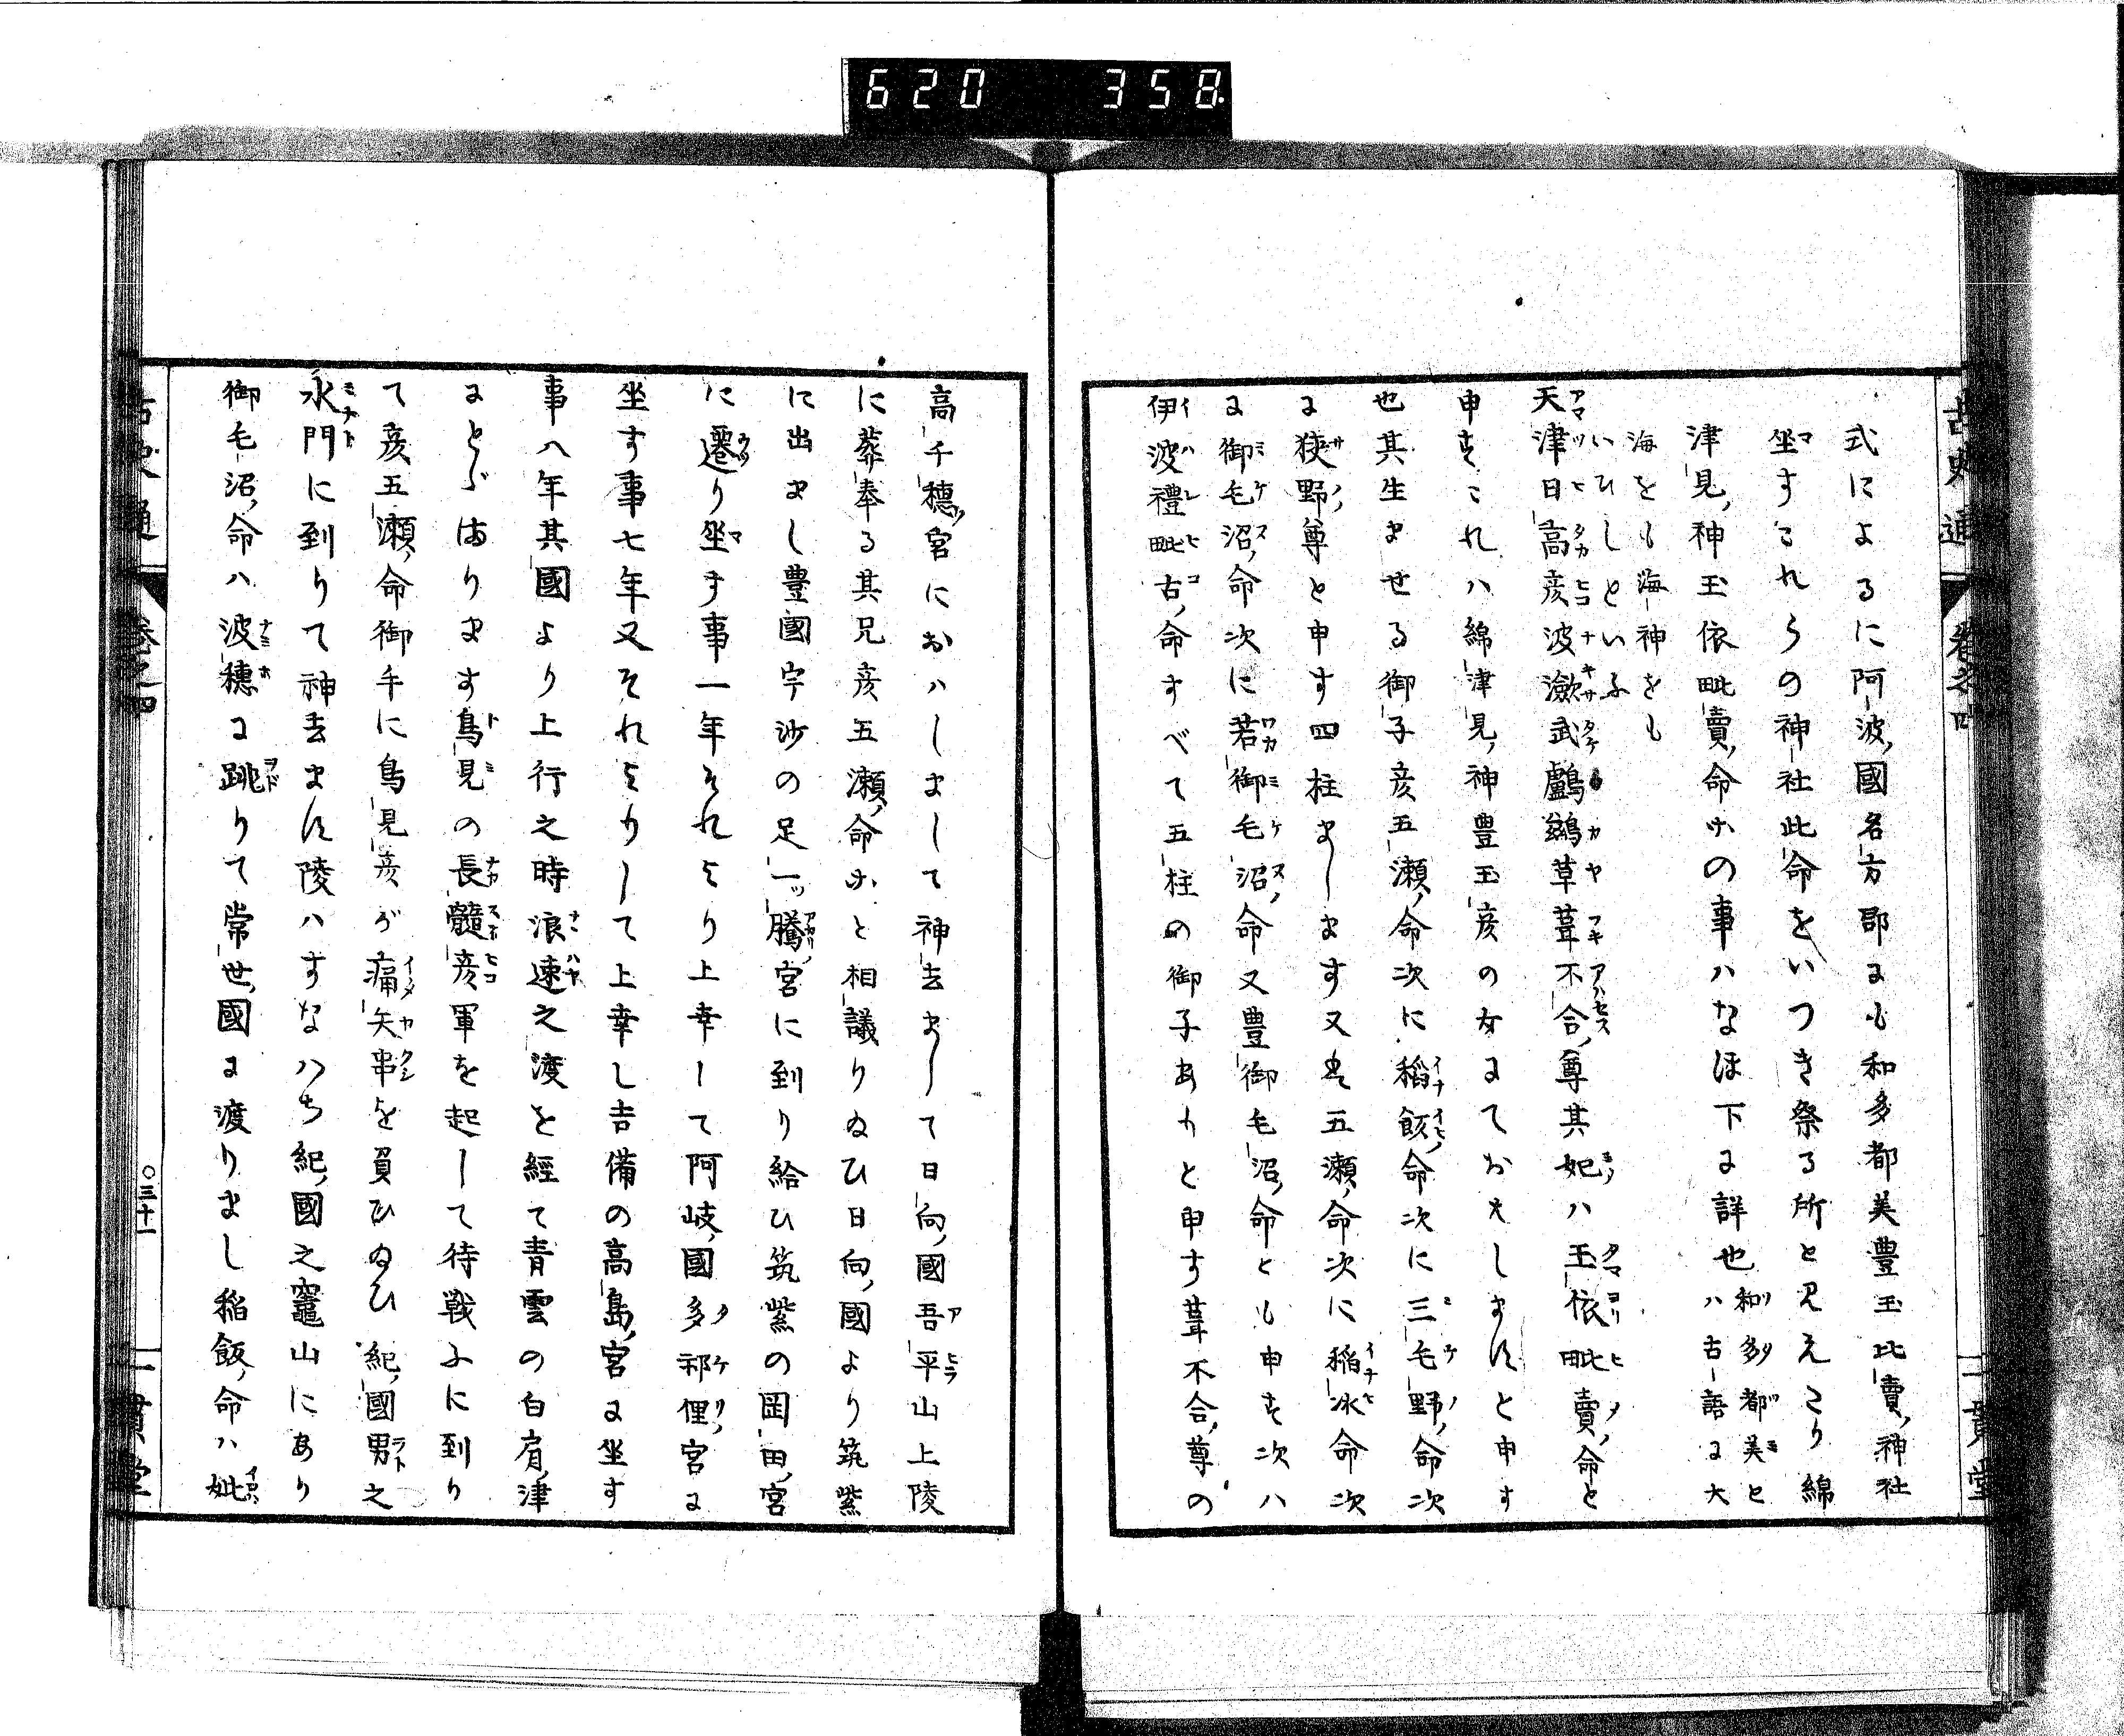 620 358.
古史通 卷之四 一貫堂
式によるに阿波國名方郡にも和多都美豊玉比賣神社
坐すこれらの神社此命をいつき祭る所と見えたり綿
津見神玉依毗賣命等の事ハなほ下に詳也和多都美とハ古語に大
海をも海神をも
いひしといふ
天津日高彦波瀲武鸕鷀草葺不合尊其妃ハ玉依毗賣命と
申すこれハ綿津見神豊玉彦の女にておはしますと申す
也其生ませる御子彦五瀬命次に稲飯命次に三毛野命次
に狭野尊と申す四柱まします又は五瀬命次に稲氷命次
に御毛沼命次に若御毛沼命又豊御毛沼命とも申す次ハ
伊波禮毗古命すべて五柱の御子ありと申す葺不合尊の
高千穂宮におハしまして神去まして日向國吾平山上陵
に葬奉る其兄彦五瀬命等と相議り給ひ日向國より筑紫
に出まし豊國宇沙の足一騰宮に到り給ひ筑紫の岡田宮
に遷り坐す事一年それより上幸して阿岐國多祁俚宮に
坐す事七年又それよりして上幸し吉備の高島宮に坐す
事八年其國より上行之時浪速之渡を經て青雲の白肩津
にとゞまります鳥見の長髓彦軍を起して待戦ふに到り
て彦五瀬命御手に鳥見彦が痛矢串を負ひ給ひ紀國男之
水門に到りて神去ます陵ハすなハち紀國之竈山にあり
御毛沼命ハ波穂に跳りて常世國に渡りまし稲飯命ハ妣
古史通 卷之四 〇三十一 一貫堂